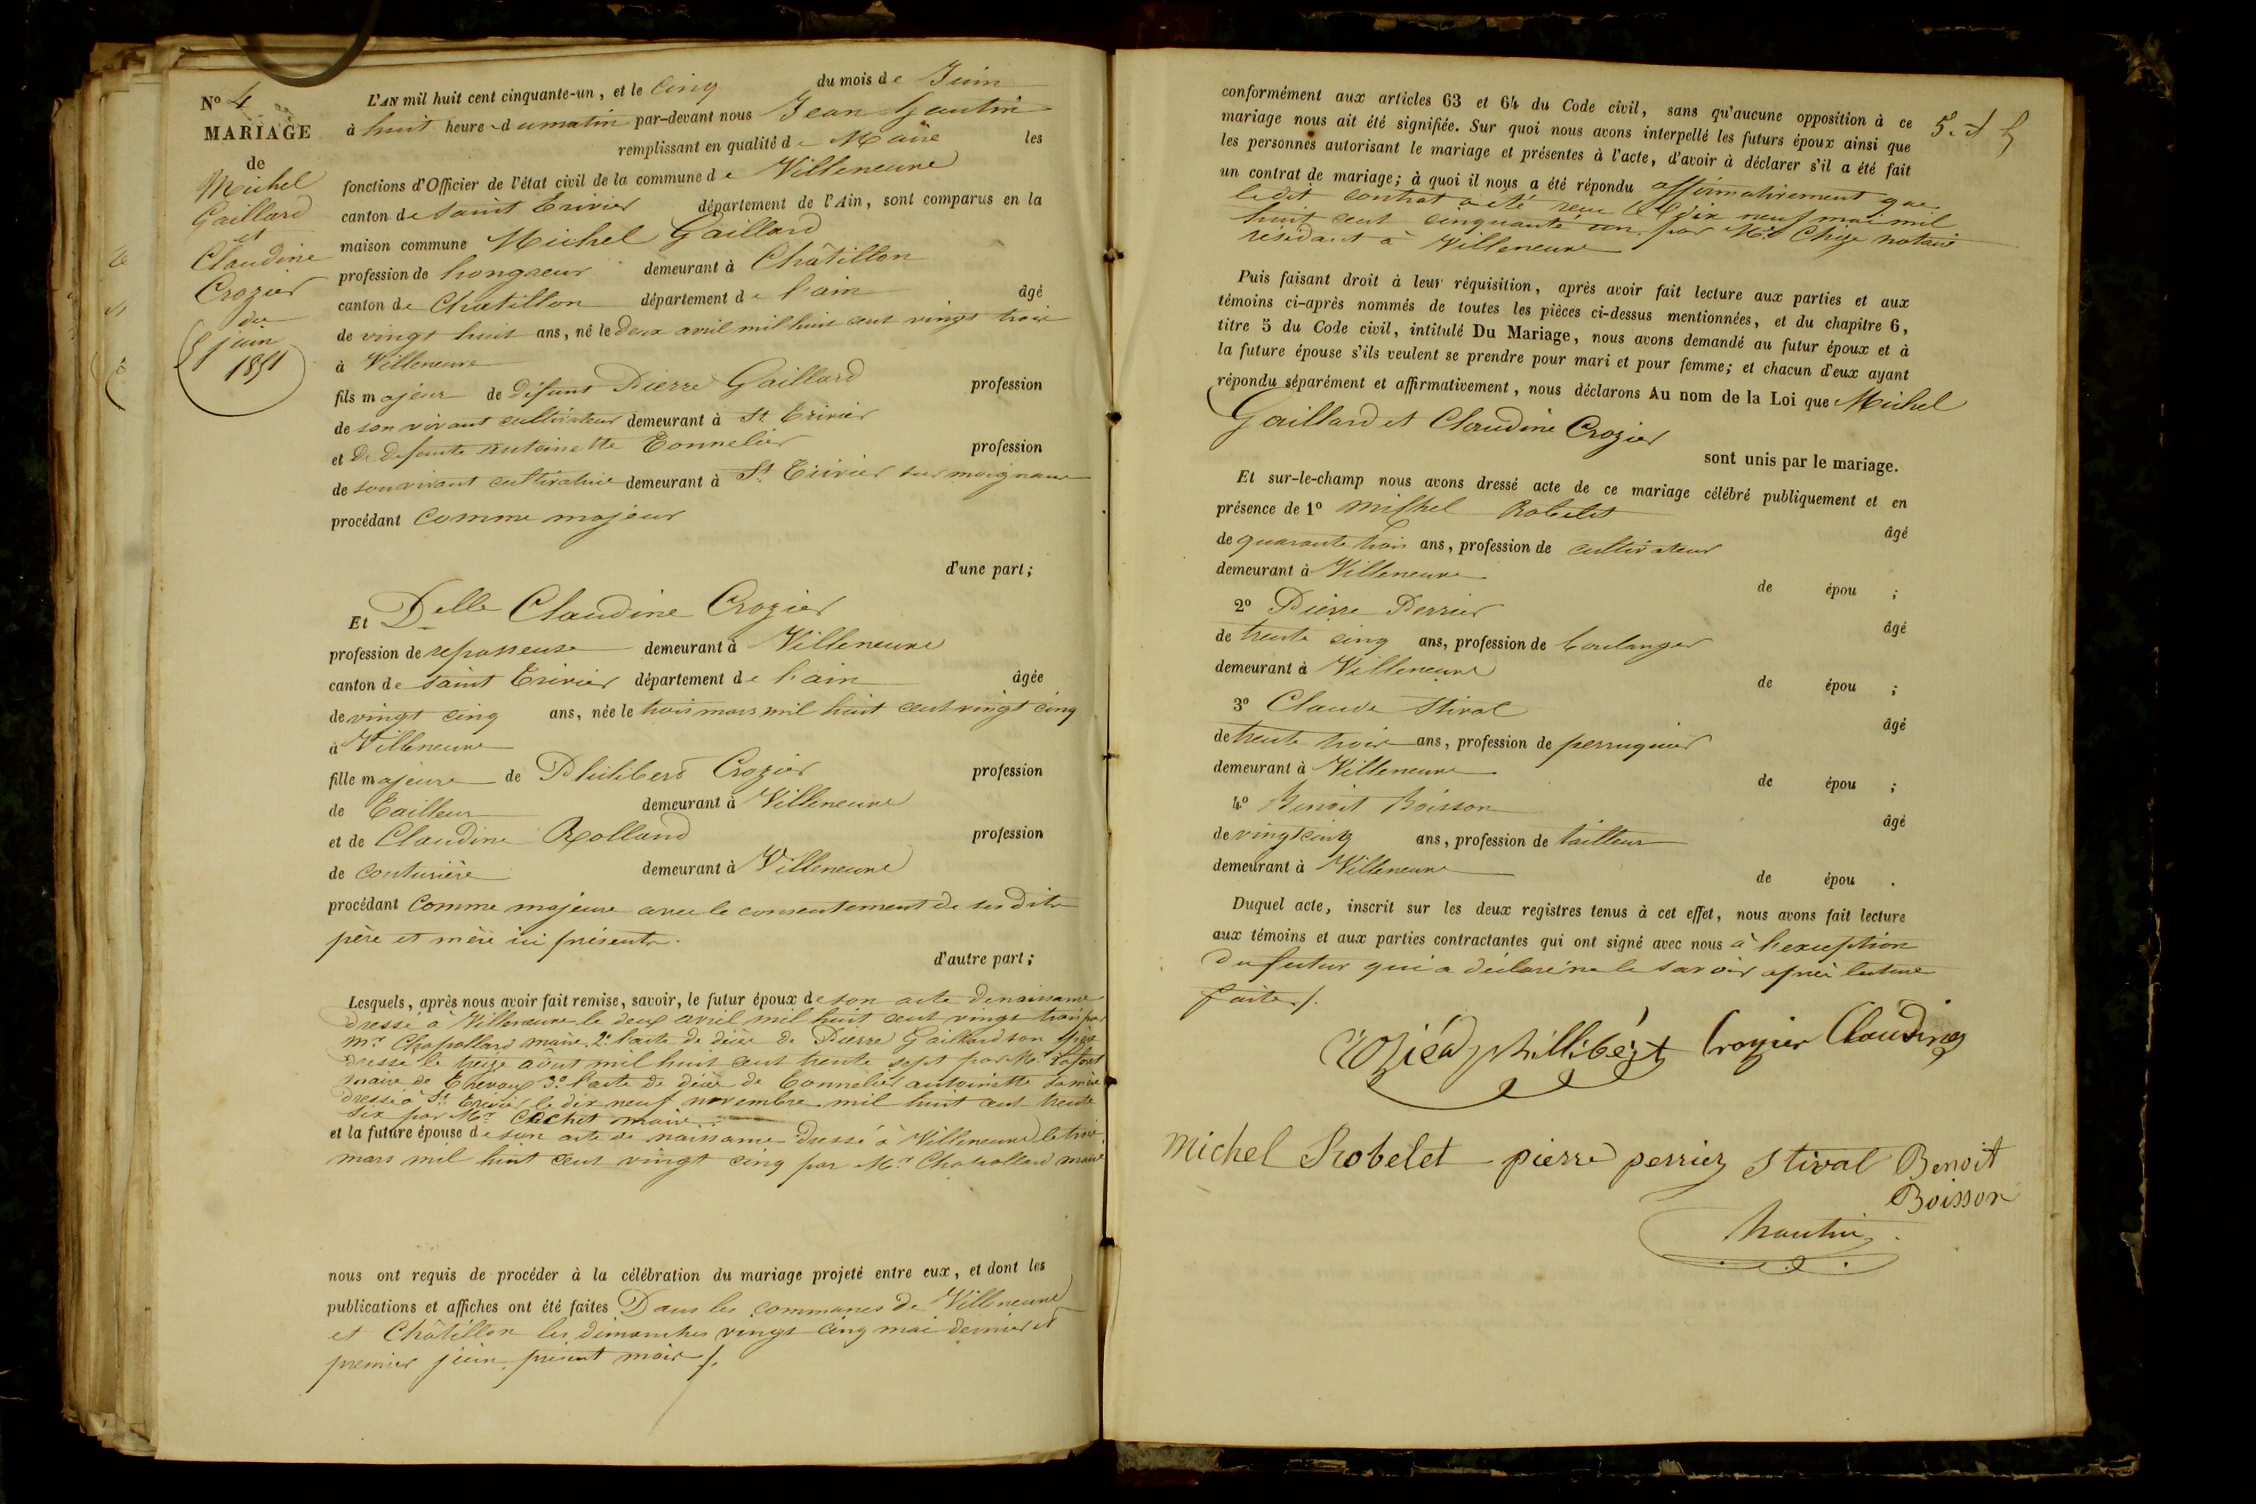 N° 4
MARIAGE
de
Michel
Gaillard
et
Claudine
Crozier
du
5 juin
1851
L'AN mil huit cent cinquante-un, et le Cinq du mois de Juin
à huit heure du matin par-devant nous Jean
remplissant en qualité de Maire les
fonctions d'Officier de l'état civil de la commune de Villeneuve
canton de Saint Trivier département de l'Ain, sont comparus en la
maison commune Michel Gaillard
profession de hongreur demeurant à Châtillon
canton de Chatillon département de l'ain âgé
de vingt huit ans, né le deux avril mil huit cent vingt trois
à Villeneuve
fils majeur de défunt Pierre Gaillard profession
de son vivant cultivateur demeurant à St Trivier
et de defunte antoinette Tonnelier profession
de son vivant cultivatrice demeurant à St Trivier sur moignans
procédant comme majeur
d'une part;
Et Delle Claudine Crozier
profession de repasseuse demeurant à Villeneuve
canton de saint Trivier département de l'ain âgée
de vingt cinq ans, née le trois mars mil huit cent vingt cinq
à Villeneuve
fille majeure de Philibert Crozier profession
de Tailleur demeurant à Villeneuve
et de Claudine Rolland profession
de couturière demeurant à Villeneuve
procédant Comme majeure avec le consentement de ses dits
père et mère ici présents.
d'autre part;
Lesquels, après nous avoir fait remise, savoir, le futur époux de son acte de naissance
dressé à Villeneuve le deux avril mil huit cent vingt trois par
Mr Chapollard maire 2° l'acte de décès de Pierre Gaillard son père
dressé le treize aout mil huit cent trente sept par Mr
maire de 3° l'acte de décès de Tonnelier antoinette sa mère
dressé à St Trivier le dix neuf novembre mil huit cent trente
six par Mr Cochet maire
et la future épouse de son acte de naissance dressé à Villeneuve le trois
mars mil huit cent vingt cinq par Mr Chapollard maire
nous ont requis de procéder à la célébration du mariage projeté entre eux, et dont les
publications et affiches ont été faites Dans les communes de Villeneuve
et Châtillon les dimanches vingt cinq mai dernier et
premier juin présent mois /.
conformément aux articles 63 et 64 du Code civil, sans qu'aucune opposition à ce
mariage nous ait été signifiée. Sur quoi nous avons interpellé les futurs époux ainsi que
les personnes autorisant le mariage et présentes à l'acte, d'avoir à déclarer s'il a été fait
un contrat de mariage; à quoi il nous a été répondu affirmativement que
ledit contrat a été reçu le dix neuf mai mil
huit cent cinquante un par Me notaire
résidant à Villeneuve
Puis faisant droit à leur réquisition, après avoir fait lecture aux parties et aux
témoins ci-après nommés de toutes les pièces ci-dessus mentionnées, et du chapitre 6,
titre 5 du Code civil, intitulé Du Mariage, nous avons demandé au futur époux et à
la future épouse s'ils veulent se prendre pour mari et pour femme; et chacun d'eux ayant
répondu séparément et affirmativement, nous déclarons Au nom de la Loi que Michel
Gaillard et Claudine Crozier
sont unis par le mariage.
Et sur-le-champ nous avons dressé acte de ce mariage célébré publiquement et en
présence de 1° Michel Robelet
âgé
de quarante trois ans, profession de cultivateur
demeurant à Villeneuve
de épou ;
2° Pierre Perrier
âgé
de trente cinq ans, profession de boulanger
demeurant à Villeneuve
de épou ;
3° Claude Stival
âgé
de trente trois ans, profession de perruquier
demeurant à Villeneuve
de épou ;
4° Benoit Boisson
âgé
de vingt cinq ans, profession de tailleur
demeurant à Villeneuve
de épou .
Duquel acte, inscrit sur les deux registres tenus à cet effet, nous avons fait lecture
aux témoins et aux parties contractantes qui ont signé avec nous à l'exception
du futur qui a déclaré ne le savoir après lecture
faite /.
phillibért Crozier Claudine
Michel Robelet pierre perrier Stival Benoit
Boisson